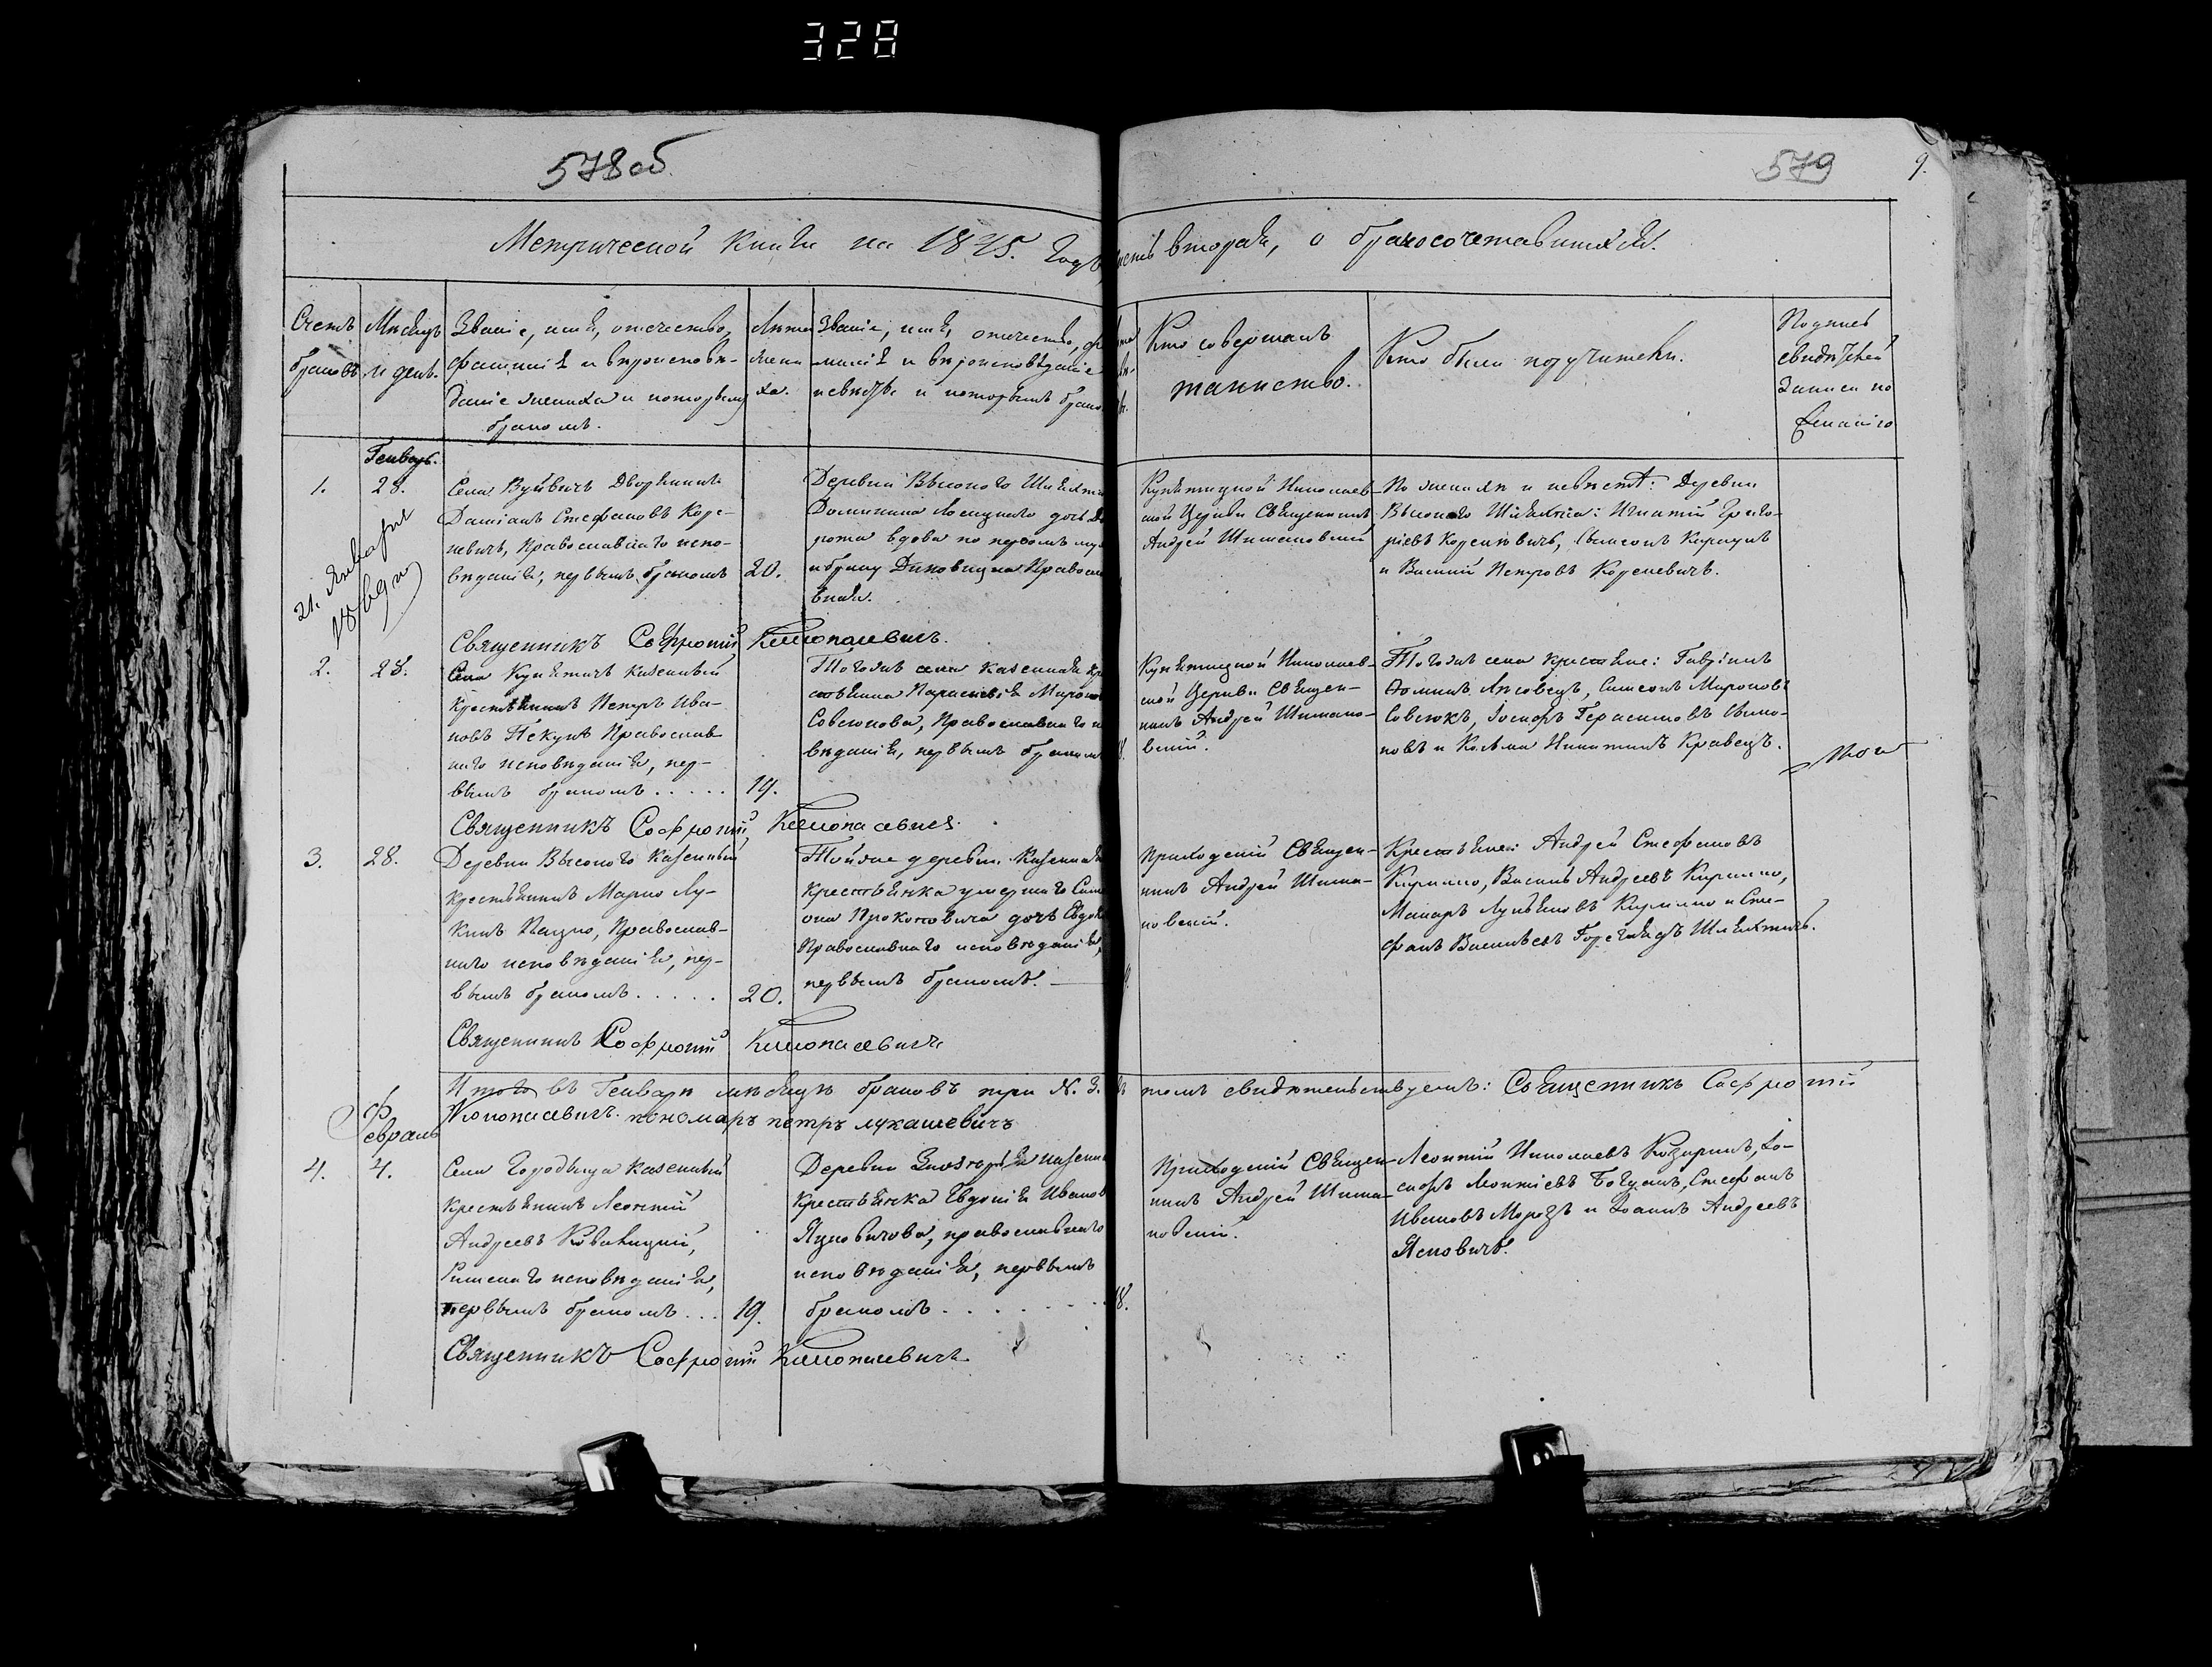 328
578 об
579
9.
Метрической книги на 1845. годъ, часть вторая, о бракосочетавшихся.
Счетъ браковъ
Мѣсяцъ и день.
Званіе, имя, отечество,
фамилія и вѣроисповѣ-
даніе жениха и которымъ
бракомъ.
Лѣта
жени
ха.
Званіе, имя, отчество, фа
милія и вѣроисповѣданіе
невѣсты и которымъ брако
Кто совершалъ
таинство.
Кто были поручители.
Подпись
свидѣтелей
записи по
желанію
Генварь.
1.
28.
21. Января
1869 г.
Села Вуйвичъ Дворянинъ
Даміанъ Стефановъ Коре-
невичъ, Православнаго испо-
вѣданія, первымъ бракомъ
20.
Деревни Высокого Шляхти
Доминика
вдова по первомъ му
Правосл
вная.
Купятицкой Николаев-
ской Церкви Священникъ
Андрей Шимановский
По женихѣ и невѣстѣ: Деревни
Высокого Шляхтa: Игнатій Григо-
ріевъ Кореневичъ,
и Василій Петровъ Кореневичъ.
Священникъ Софроній Конопасевичъ.
2.
28.
Села Купятичъ казенный
крестьянинъ Петръ Ива-
новъ Пекунъ Православ
наго исповѣданія, пер-
вымъ бракомъ . . . . .
19.
Тогожъ села казенная кре
стьянка Параскевія Мироно
Совсюкова, Православнаго и
вѣданія, первымъ бракомъ
18.
Купятицкой Николаев-
ской Церкви Священ-
никъ Андрей Шимано-
вскій.
Тогожъ села крестьяне: Гавріилъ
Ѳоминъ Лисовецъ, Симеонъ Мироновъ
Совсюкъ, Іосифъ Герасимовъ
новъ и Козьма Никитинъ Кравецъ.
Священникъ Софроній Конопасевичъ.
3.
28.
Деревни Высокого казенный
крестьянинъ Марко Лу-
кинъ Пацко, Православ-
наго исповѣданія, пер-
вымъ бракомъ . . . . .
20.
Тойже деревни казенная
крестьянка умершаго Сим
она Прокоповича дочь Евдок
Православнаго исповѣданія,
первымъ бракомъ.
Приходскій Священ-
никъ Андрей Шима-
новскій.
Крестьяне: Андрей Стефановъ
Кирилко, Василій Андреевъ Кирилко,
Макаръ Лукьяновъ Кирилко и Сте-
фанъ Васильевъ Шляхтичъ.
Священникъ Софроній Конопасевичъ
Итого въ Генварѣ мѣсяцѣ браковъ три N. 3. въ томъ свидѣтельствуемъ: Священникъ Софроній
Конопасевичъ. пономаръ петръ лукашевичъ
Февраль
4.
4.
Села Городища казенный
крестьянинъ Леонтій
Андреевъ Ковальцкій,
Римскаго исповѣданія,
первымъ бракомъ . . .
19.
Деревни казенн
крестьянка Евдокія Иванов
православнаго
исповѣданія, первымъ
бракомъ . . . . . . .
18.
Приходскій Священ-
никъ Андрей Шима-
новскій.
Леонтій Николаевъ Козаринъ, Іо-
сифъ Леонтіевъ Богданъ, Стефанъ
Ивановъ Морозъ и Іоаннъ Андреевъ
Ясковичъ.
Священникъ Софроній Конопасевичъ